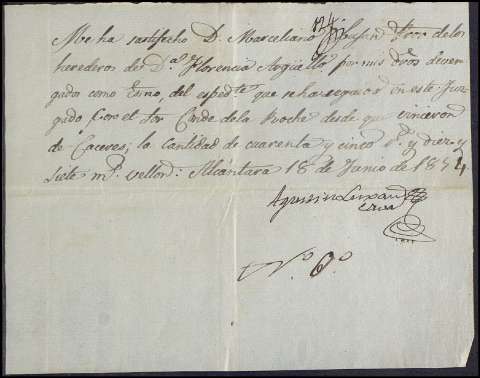 124
Me ha satisfecho D. Marceliano Tor. de los
herederos de D.ª Florencia Argüello por mis dros deven-
gados como Esno, del espedte que se ha seguido en este Juz-
gado con el Sor Conde de la Roche desde que vinieron
de Caceres; la cantidad de cuarenta y cinco r.s y diez y
siete m.s vellon: Alcantara 18 de Junio de 1834.
Agustin
N.º 6.º